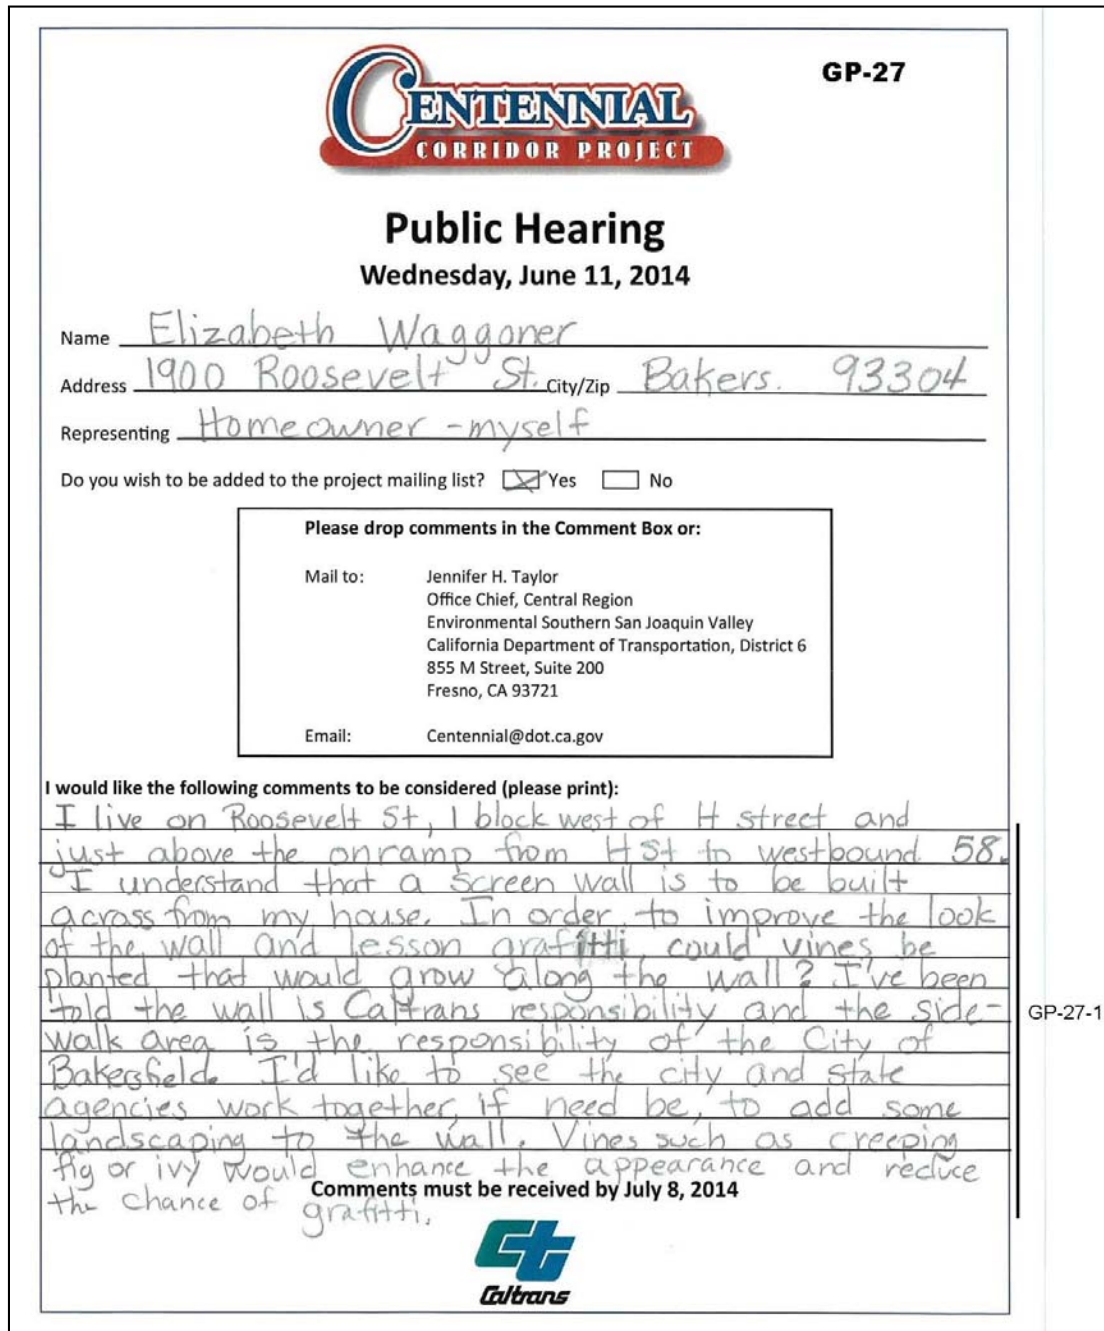 GP-27
CENTENNIAL
CORRIDOR PROJECT
Public Hearing
Wednesday, June 11, 2014
Name Elizabeth Waggoner
Address 1900 Roosevelt St. City/Zip Bakers. 93304
Representing Homeowner - myself
Do you wish to be added to the project mailing list? Yes No
Please drop comments in the Comment Box or:
Mail to: Jennifer H. Taylor
Office Chief, Central Region
Environmental Southern San Joaquin Valley
California Department of Transportation, District 6
855 M Street, Suite 200
Fresno, CA 93721
Email: Centennial@dot.ca.gov
I would like the following comments to be considered (please print):
I live on Roosevelt St, 1 block west of H street and
just above the onramp from H St to westbound 58.
I understand that a screen wall is to be built
across from my house. In order to improve the look
of the wall and lesson grafitti could vines be
planted that would grow along the wall? I've been
told the wall is Caltrans responsibility and the side-
walk area is the responsibility of the City of
Bakersfield. I'd like to see the city and state
agencies work together, if need be, to add some
landscaping to the wall. Vines such as creeping
fig or ivy would enhance the appearance and reduce
the chance of grafitti.
GP-27-1
Comments must be received by July 8, 2014
Caltrans